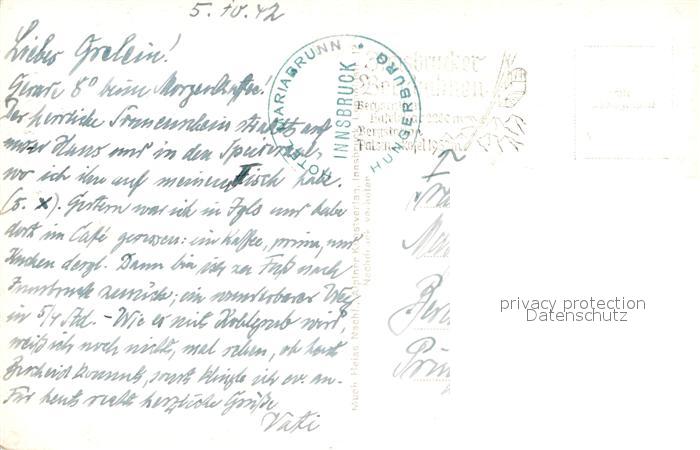 5.10.42
Liebes Gretlein!
Gerade 8° beim Morgenkaffee.
Der herrliche Sonnenschein strahlt auf
unser Haus und in den Speisesaal,
wo ich ihn auf meinem Tisch habe.
(s. X). Gestern war ich in Igls und habe
dort im Café gesessen: ein Kaffee, prima, und
Kuchen dergl. Dann bin ich zu Fuß nach
Innsbruck zurück; ein wunderbarer Weg
in 5/4 Std. - Wie es mit Kohlgrub wird,
weiß ich noch nicht, mal sehen, ob heut
Bescheid kommt, sonst klingle ich ev. an.
Für heute recht herzliche Grüße
Vati
HOTEL MARIABRUNN • HUNGERBURG
INNSBRUCK
Innsbrucker
Bergbahnen
privacy protection
Datenschutz